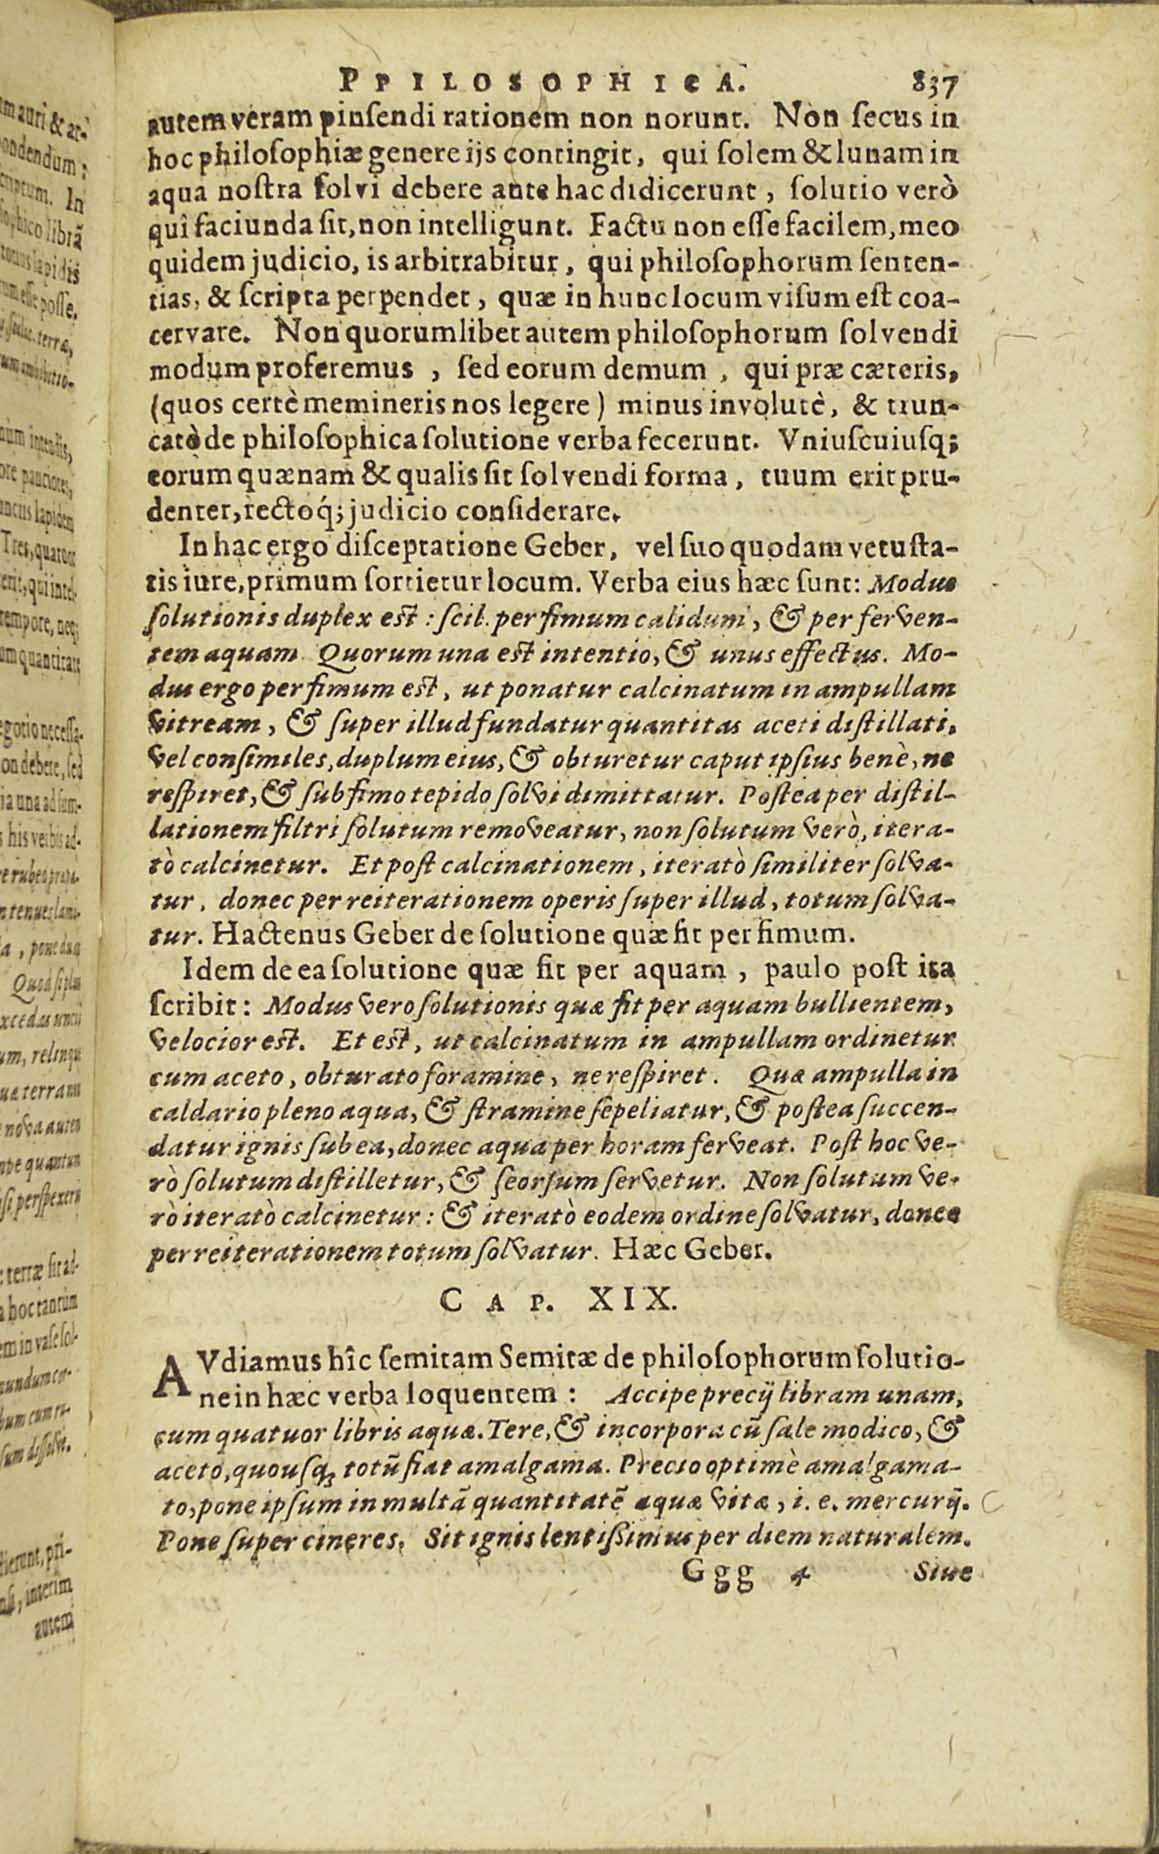 PPILOSOPHICA. 837
autem veram pinſendi rationem non norunt. Non ſecus in
hoc philoſophiæ genere ijs contingit, qui ſolem & lunam in
aqua noſtra ſolvi debere ante hac didicerunt, ſolutio verò
quî faciunda ſit, non intelligunt. Factu non eſſe facilem, meo
quidem judicio, is arbitrabitur, qui philoſophorum ſenten-
tias, & ſcripta perpendet, quæ in hunc locum viſum eſt coa-
cervare. Non quorumlibet autem philoſophorum ſolvendi
modum proferemus, ſed eorum demum, qui præ cæteris,
(quos certè memineris nos legere) minus involutè, & trun-
catè de philoſophica ſolutione verba fecerunt. Vniuſcuiuſq;
eorum quænam & qualis ſit ſolvendi forma, tuum erit pru-
denter, rectoq́; judicio conſiderare.
In hac ergo diſceptatione Geber, vel ſuo quodam vetuſta-
tis iure, primum ſortietur locum. Verba eius hæc ſunt: Modus
ſolutionis duplex eſt: ſcil. per fimum calidum, & per ferven-
tem aquam. Quorum una eſt intentio, & unus effectus. Mo-
dus ergo per fimum eſt, ut ponatur calcinatum in ampullam
vitream, & ſuper illud fundatur quantitas aceti diſtillati,
vel conſimiles, duplum eius, & obturetur caput ipſius benè, ne
reſpiret, & ſub fimo tepido ſolvi dimittatur. Poſtea per diſtil-
lationem filtri ſolutum removeatur, non ſolutum verò, itera-
tò calcinetur. Et poſt calcinationem, iteratò ſimiliter ſolva-
tur, donec per reiterationem operis ſuper illud, totum ſolva-
tur. Hactenus Geber de ſolutione quæ fit per fimum.
Idem de ea ſolutione quæ fit per aquam, paulo poſt ita
ſcribit: Modus vero ſolutionis quæ fit per aquam bullientem,
velocior eſt. Et eſt, ut calcinatum in ampullam ordinetur
cum aceto, obturato foramine, ne reſpiret. Quæ ampulla in
caldario pleno aqua, & ſtramine ſepeliatur, & poſtea ſuccen-
datur ignis ſub ea, donec aqua per horam ferveat. Poſt hoc ve-
rò ſolutum diſtilletur, & ſeorſum ſervetur. Non ſolutum ve-
rò iteratò calcinetur: & iteratò eodem ordine ſolvatur, donec
per reiterationem totum ſolvatur. Hæc Geber.
CAP. XIX.
AVdiamus hîc ſemitam Semitæ de philoſophorum ſolutio-
ne in hæc verba loquentem: Accipe precij libram unam,
cum quatuor libris aquæ. Tere, & incorpora cũ ſale modico, &
aceto, quouſq; totũ fiat amalgama. Precio optimè amalgama-
to, pone ipſum in multã quantitatẽ aquæ vitæ, i. e. mercurij.
Pone ſuper cineres. Sit ignis lentiſſimus per diem naturalem.
Ggg 4 Sive